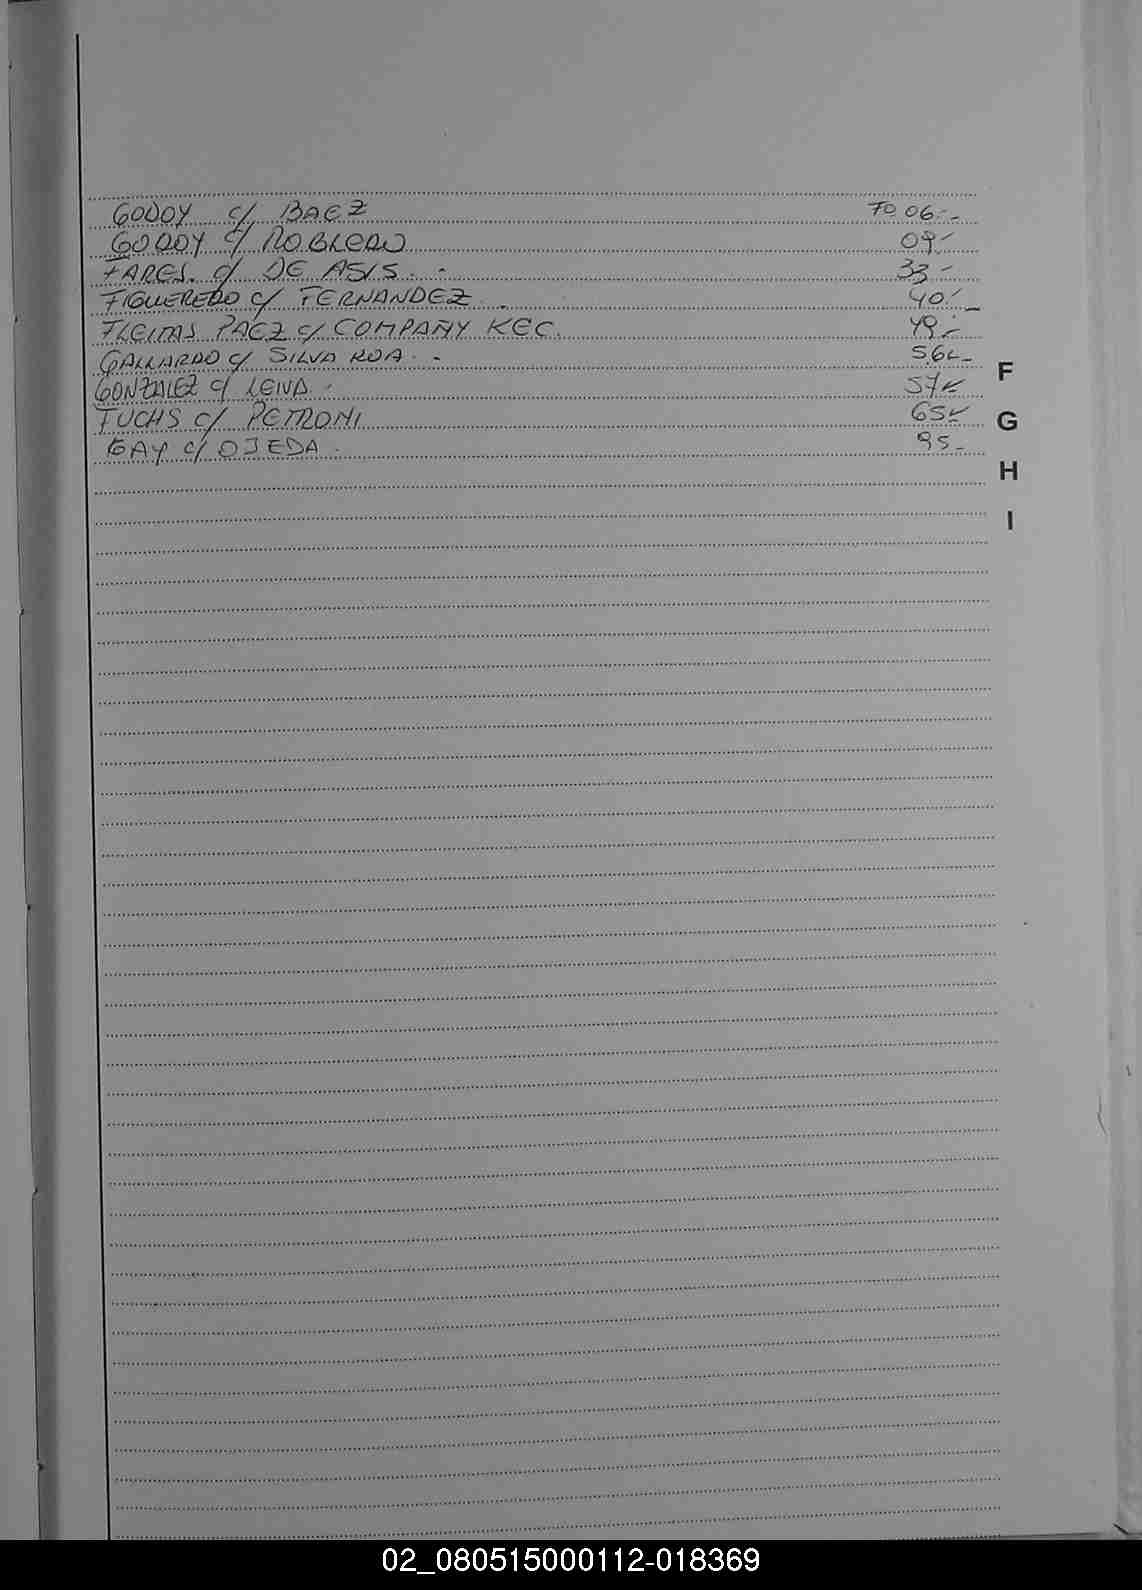 GODOY c/ BAEZ FO 06.-
GODOY c/ ROBLEDO 09-
FARES. c/ DE ASIS. - 33-
FIGUEREDO c/ FERNANDEZ. 40.-
FLEITAS PAEZ c/ COMPAÑY KEC. 49.-
GALLARDO c/ SILVA ROA. - 56-
GONZALEZ c/ LEIVA. - 57-
FUCHS c/ PETRONI 65-
GAY c/ OJEDA. 95-
F
G
H
I
02_080515000112-018369